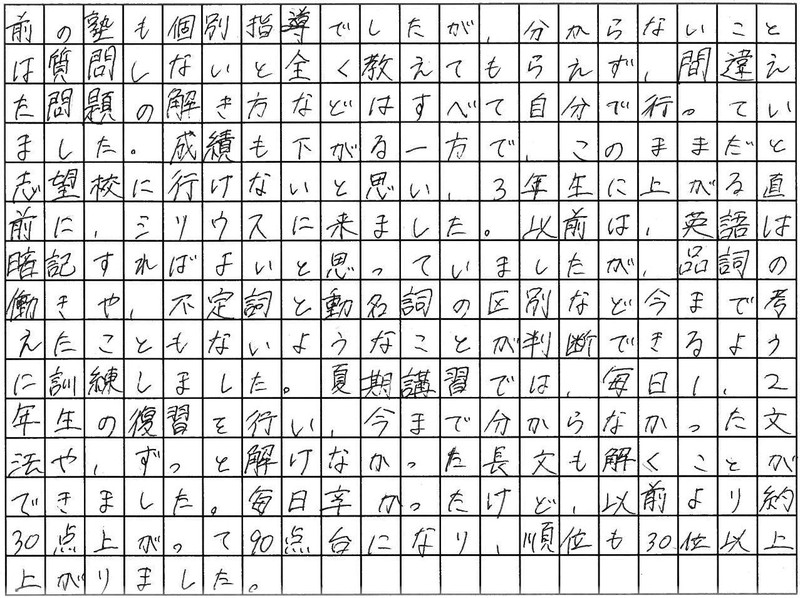 前の塾も個別指導でしたが、分からないこと
は質問しないと全く教えてもらえず、間違え
た問題の解き方などはすべて自分で行ってい
ました。成績も下がる一方で、このままだと
志望校に行けないと思い、3年生に上がる直
前に、シリウスに来ました。以前は、英語は
暗記すればよいと思っていましたが、品詞の
働きや、不定詞と動名詞の区別など今まで考
えたこともないようなことが判断できるよう
に訓練しました。夏期講習では、毎日1、2
年生の復習を行い、今まで分からなかった文
法や、ずっと解けなかった長文も解くことが
できました。毎日辛かったけど、以前より約
30点上がって90点台になり、順位も30位以上
上がりました。